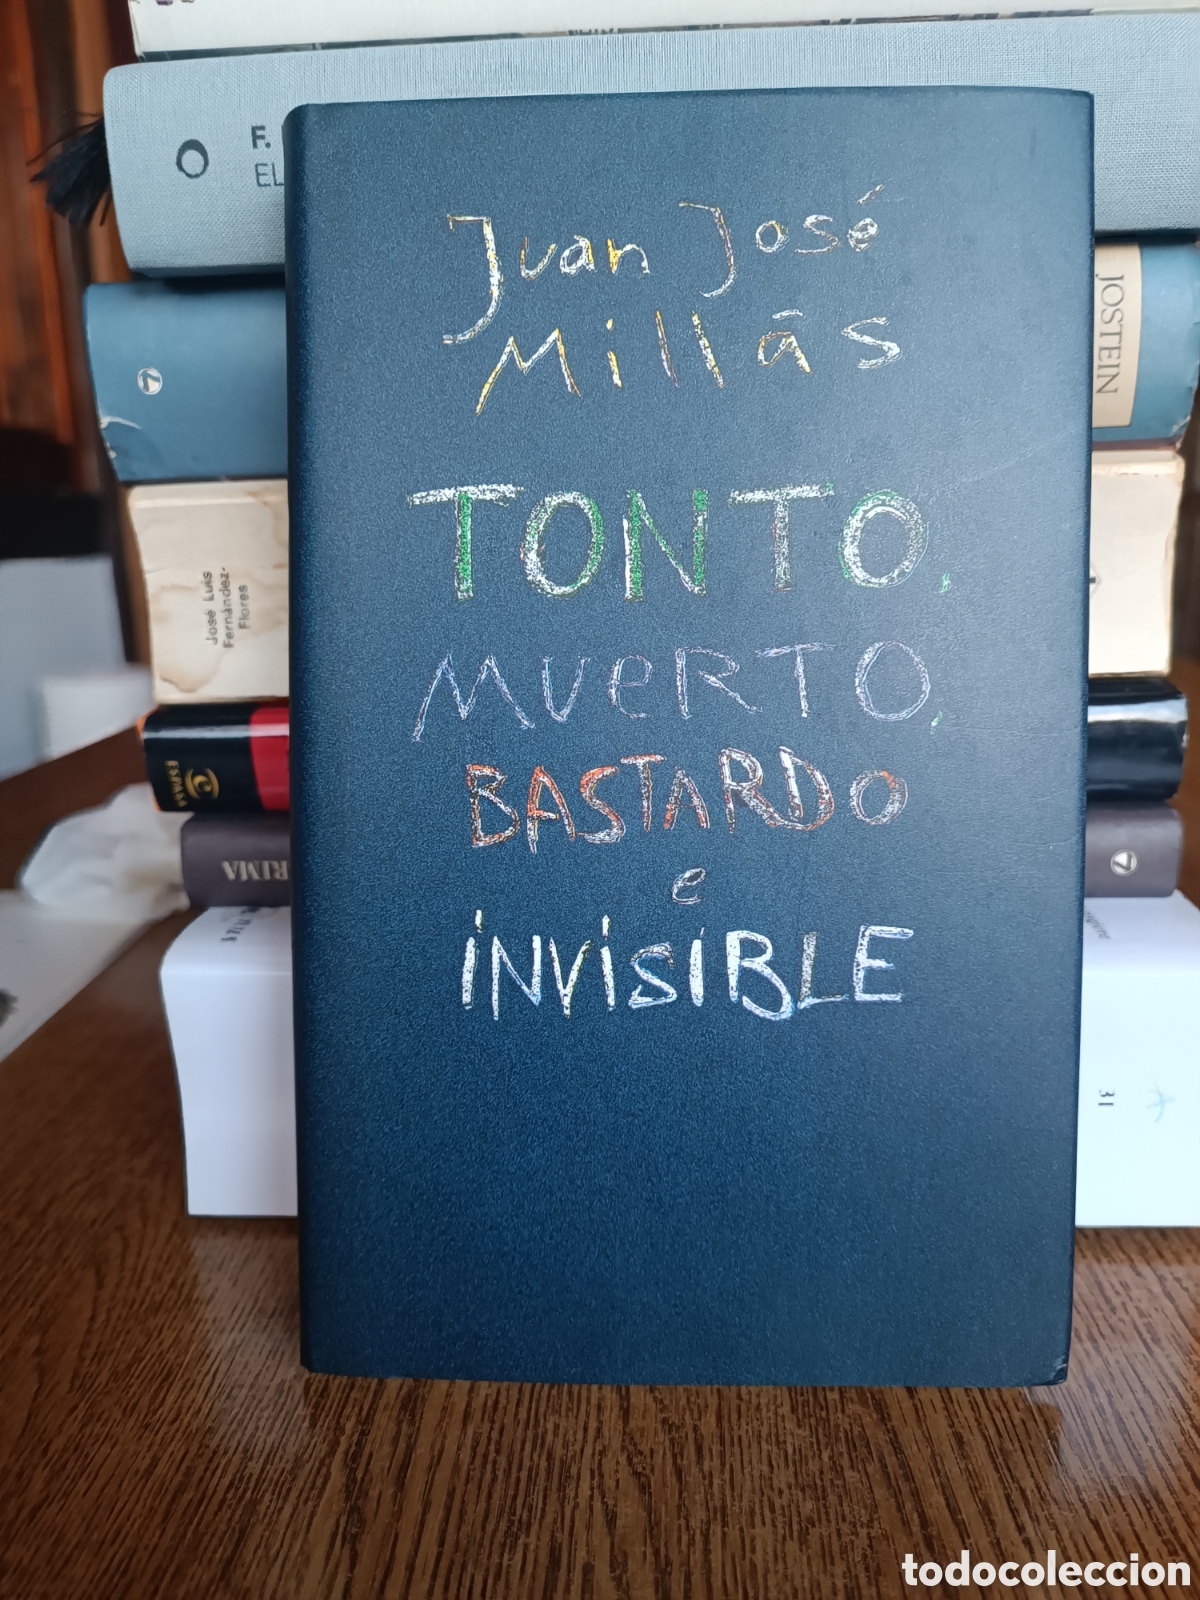 F.
EL
Juan José
Millás
TONTO,
MUERTO,
BASTARDO
e
INVISIBLE
JOSTEIN
José Luis
Fernández-
Flores
ESPASA
RIMA
31
todocoleccion